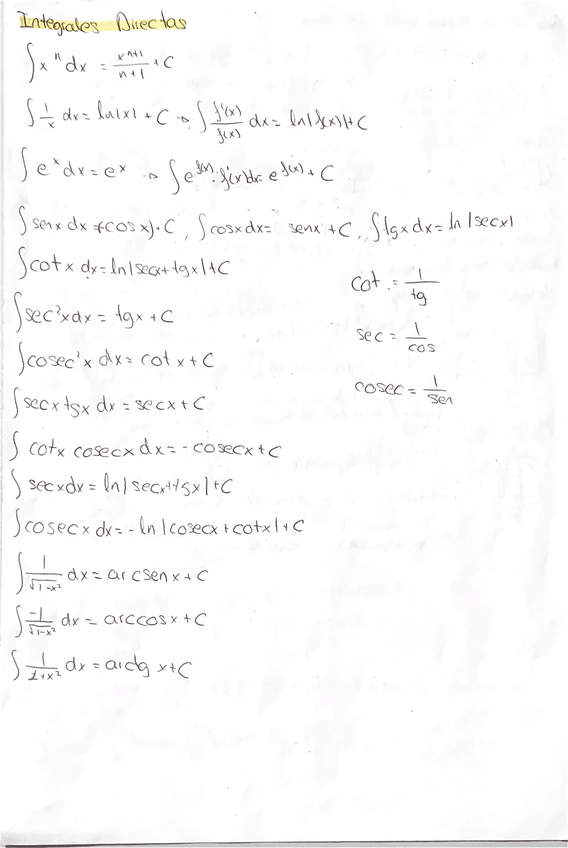 Integrales Directas
∫ x^n dx = x^(n+1)/(n+1) + C
∫ 1/x dx = ln|x| + C → ∫ f'(x)/f(x) dx = ln|f(x)| + C
∫ e^x dx = e^x → ∫ e^f(x) · f'(x) dx = e^f(x) + C
∫ senx dx = (cos x) + C, ∫ cosx dx = senx + C, ∫ tgx dx = ln|secx|
∫ cot x dx = ln|secx + tgx| + C
cot = 1/tg
∫ sec²x dx = tgx + C
sec = 1/cos
∫ cosec²x dx = cot x + C
cosec = 1/sen
∫ secx tgx dx = secx + C
∫ cotx cosecx dx = -cosecx + C
∫ secx dx = ln|secx + tgx| + C
∫ cosecx dx = -ln|cosecx + cotx| + C
∫ 1/√(1-x²) dx = arcsenx + C
∫ -1/√(1-x²) dx = arccosx + C
∫ 1/(1+x²) dx = arctg x + C